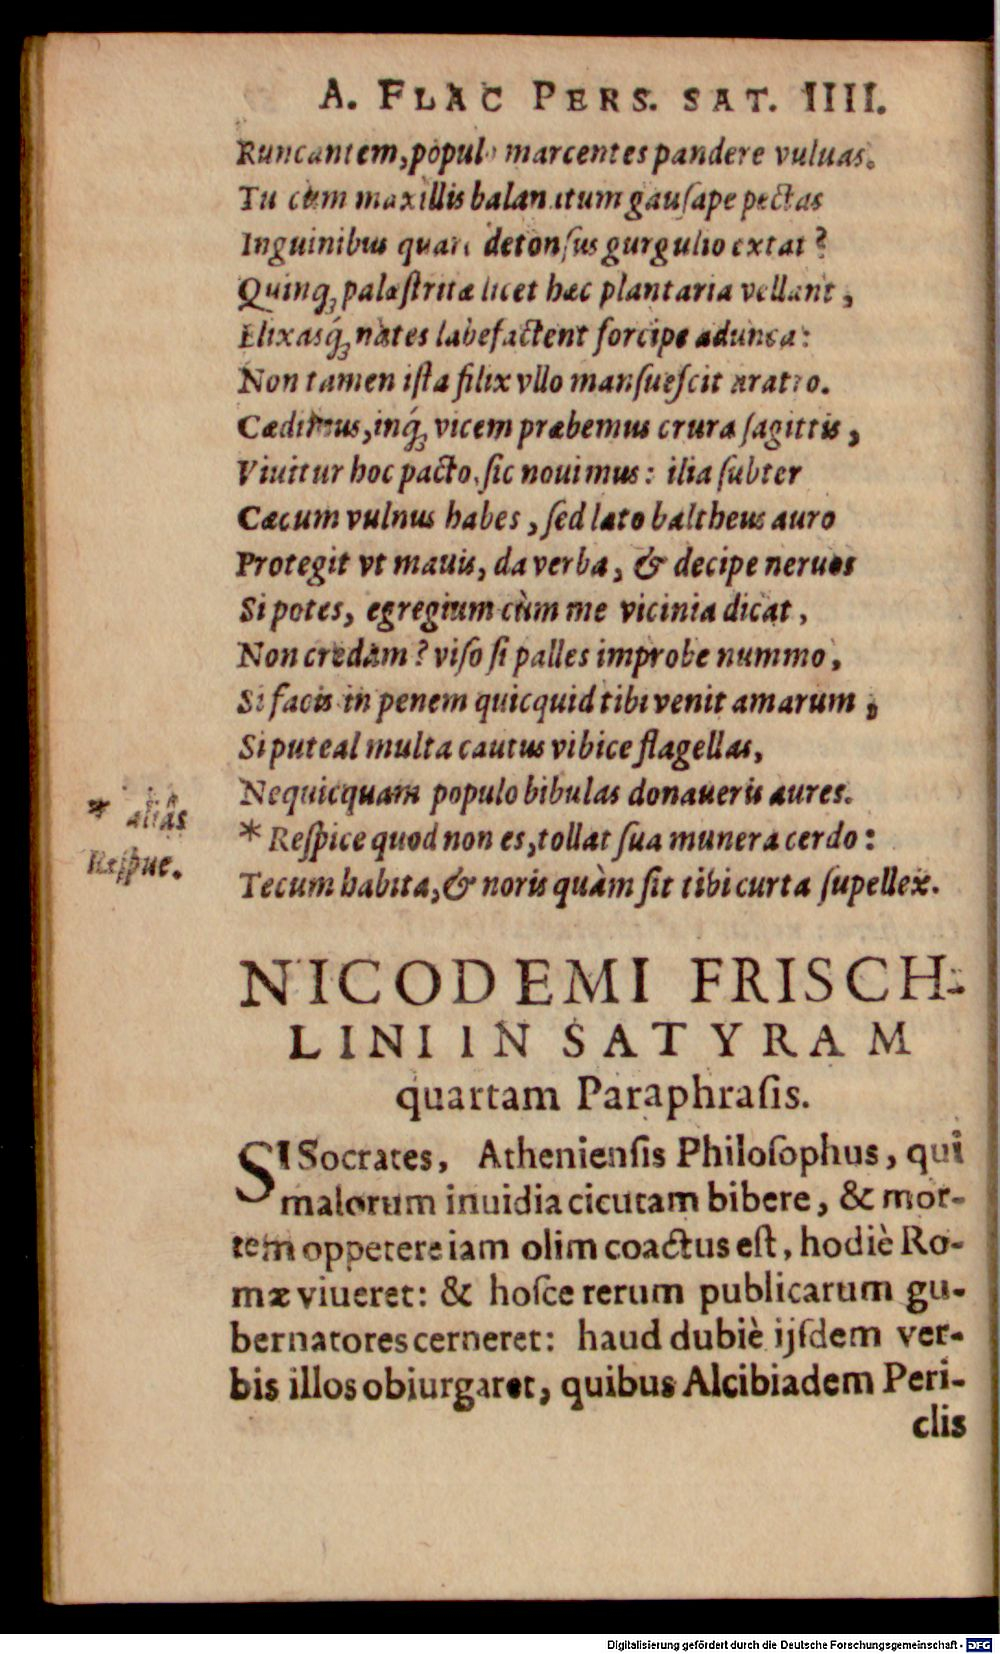 A. FLAC PERS. SAT. IIII.
Runcantem, populo marcentes pandere vuluas.
Tu cùm maxillis balanatum gauſape pectas
Inguinibus quare detonſus gurgulio extat?
Quinq́ꝫ palæſtritæ licet hæc plantaria vellant,
Elixasq́ꝫ nates labefactent forcipe adunca:
Non tamen iſta filix vllo manſueſcit aratro.
Cædimus, inq́ꝫ vicem præbemus crura ſagittis,
Viuitur hoc pacto, ſic nouimus: ilia ſubter
Cæcum vulnus habes, ſed lato baltheus auro
Protegit vt mauis, da verba, & decipe neruos
Si potes, egregium cùm me vicinia dicat,
Non credam? viſo ſi palles improbe nummo,
Si facis in penem quicquid tibi venit amarum,
Si puteal multa cautus vibice flagellas,
Nequicquam populo bibulas donaueris aures.
* aliâs
Reſpue.
* Reſpice quod non es, tollat ſua munera cerdo:
Tecum habita, & noris quàm ſit tibi curta ſupellex.
NICODEMI FRISCH-
LINI IN SATYRAM
quartam Paraphraſis.
SI Socrates, Athenienſis Philoſophus, qui
malorum inuidia cicutam bibere, & mor-
tem oppetere iam olim coactus eſt, hodiè Ro-
mæ viueret: & hoſce rerum publicarum gu-
bernatores cerneret: haud dubiè ijſdem ver-
bis illos obiurgaret, quibus Alcibiadem Peri-
clis
Digitalisierung gefördert durch die Deutsche Forschungsgemeinschaft - DFG